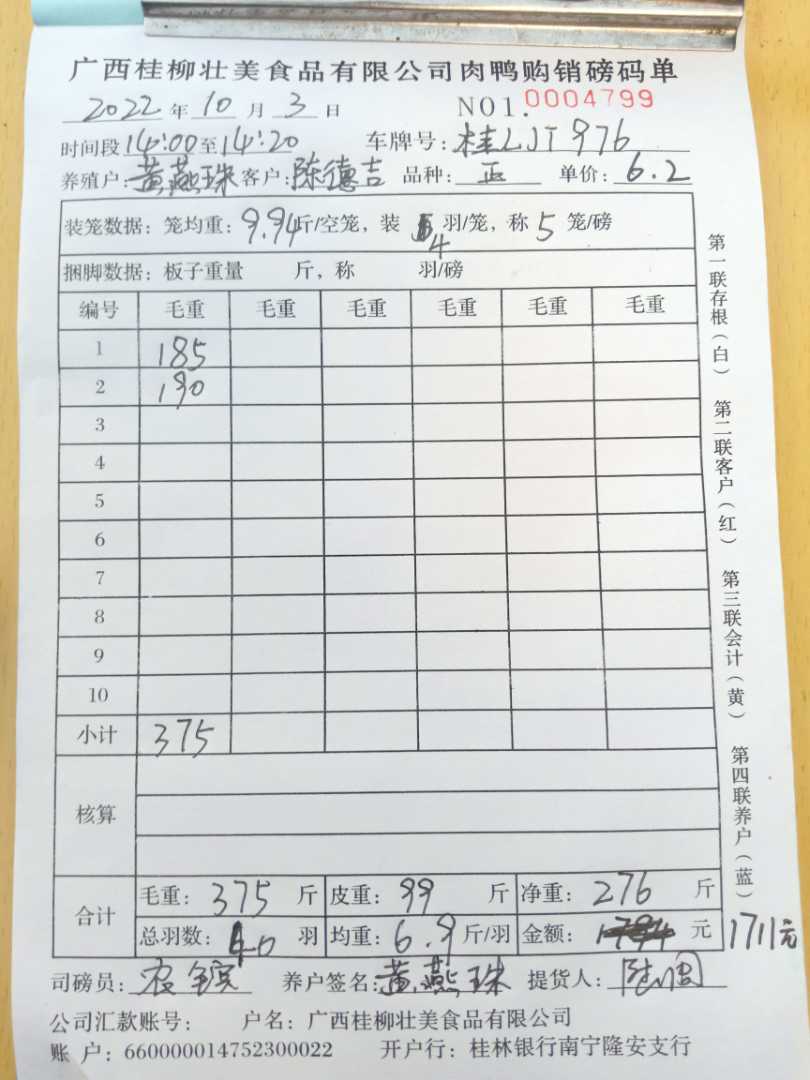 广西桂柳壮美食品有限公司肉鸭购销磅码单
2022 年 10 月 3 日 NO1. 0004799
时间段 14:00 至 14:20 车牌号: 桂LJT976
养殖户: 黄燕珠 客户: 陈德吉 品种: 正 单价: 6.2
装笼数据: 笼均重: 9.94 斤/空笼, 装 4 羽/笼, 称 5 笼/磅
捆脚数据: 板子重量 斤, 称 羽/磅
编号 毛重 毛重 毛重 毛重 毛重 毛重
1 185
2 190
3
4
5
6
7
8
9
10
小计 375
核算
合计 毛重: 375 斤 皮重: 99 斤 净重: 276 斤
总羽数: 40 羽 均重: 6.9 斤/羽 金额: 元 1711元
司磅员: 农 养户签名: 黄燕珠 提货人: 陆
公司汇款账号: 户名: 广西桂柳壮美食品有限公司
账 户: 660000014752300022 开户行: 桂林银行南宁隆安支行
第一联存根(白) 第二联客户(红) 第三联会计(黄) 第四联养户(蓝)